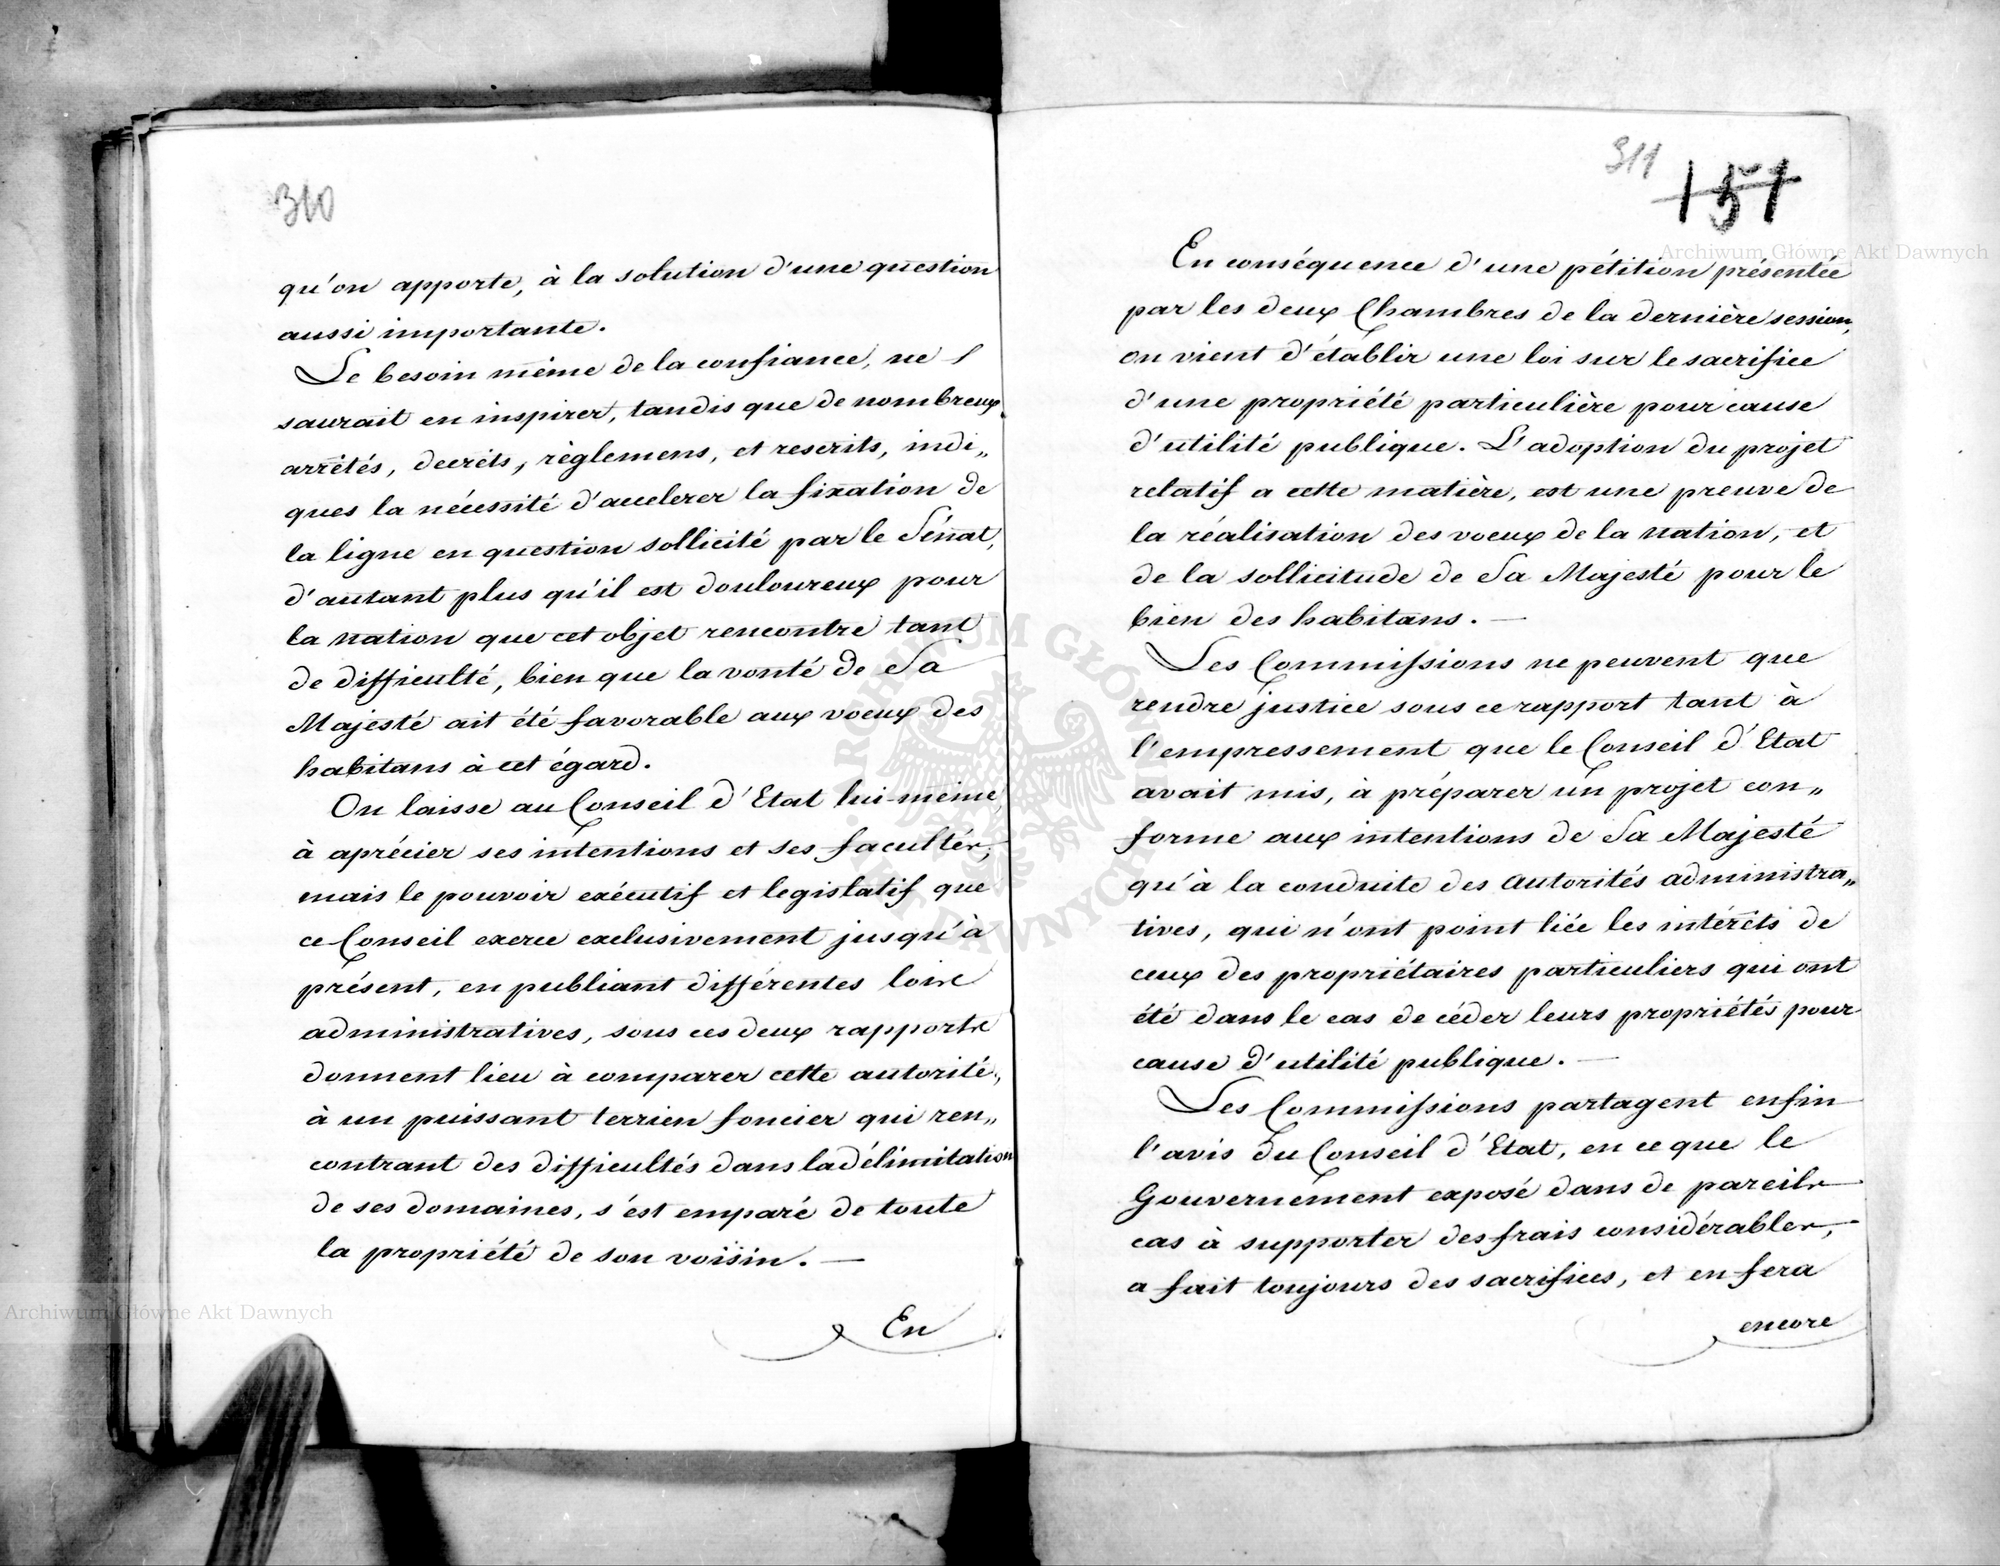 310
qu'on apporte, à la solution d'une question
aussi importante.
Le besoin même de la confiance, ne
saurait en inspirer, tandis que de nombreux
arrêtés, decrêts, règlemens, et rescrits, indi„
ques la nécessité d'accelerer la fixation de
la ligne en question sollicité par le Sénat,
d'autant plus qu'il est douloureux pour
la nation que cet objet rencontre tant
de difficulté, bien que la vonté de Sa
Majesté ait été favorable aux voeux des
habitans à cet égard.
On laisse au Conseil d'Etat lui-même
à aprécier ses intentions et ses facultés,
mais le pouvoir exécutif et legislatif que
ce Conseil exerce exclusivement jusqu'à
présent, en publiant différentes loix
administratives, sous ces deux rapports
donnent lieu à comparer cette autorité,
à un puissant terrien foncier qui ren„
contrant des difficultés dans la délimitation
de ses domaines, s'est emparé de toute
la propriété de son voisin. —
En
311
151
En conséquence d'une pétition présentée
par les deux Chambres de la dernière session,
on vient d'établir une loi sur le sacrifice
d'une propriété particulière pour cause
d'utilité publique. L'adoption du projet
relatif a cette matière, est une preuve de
la réalisation des voeux de la nation, et
de la sollicitude de Sa Majesté pour le
bien des habitans. —
Les Commissions ne peuvent que
rendre justice sous ce rapport tant à
l'empressement que le Conseil d'Etat
avait mis, à préparer un projet con„
forme aux intentions de Sa Majesté
qu'à la conduite des autorités administra„
tives, qui n'ont point liée les intérêts de
ceux des propriétaires particuliers qui ont
été dans le cas de céder leurs propriétés pour
cause d'utilité publique. —
Les Commissions partagent enfin
l'avis du Conseil d'Etat, en ce que le
Gouvernement exposé dans de pareils
cas à supporter des frais considérables,
a fait toujours des sacrifices, et en fera
encore
Archiwum Główne Akt Dawnych
Archiwum Główne Akt Dawnych